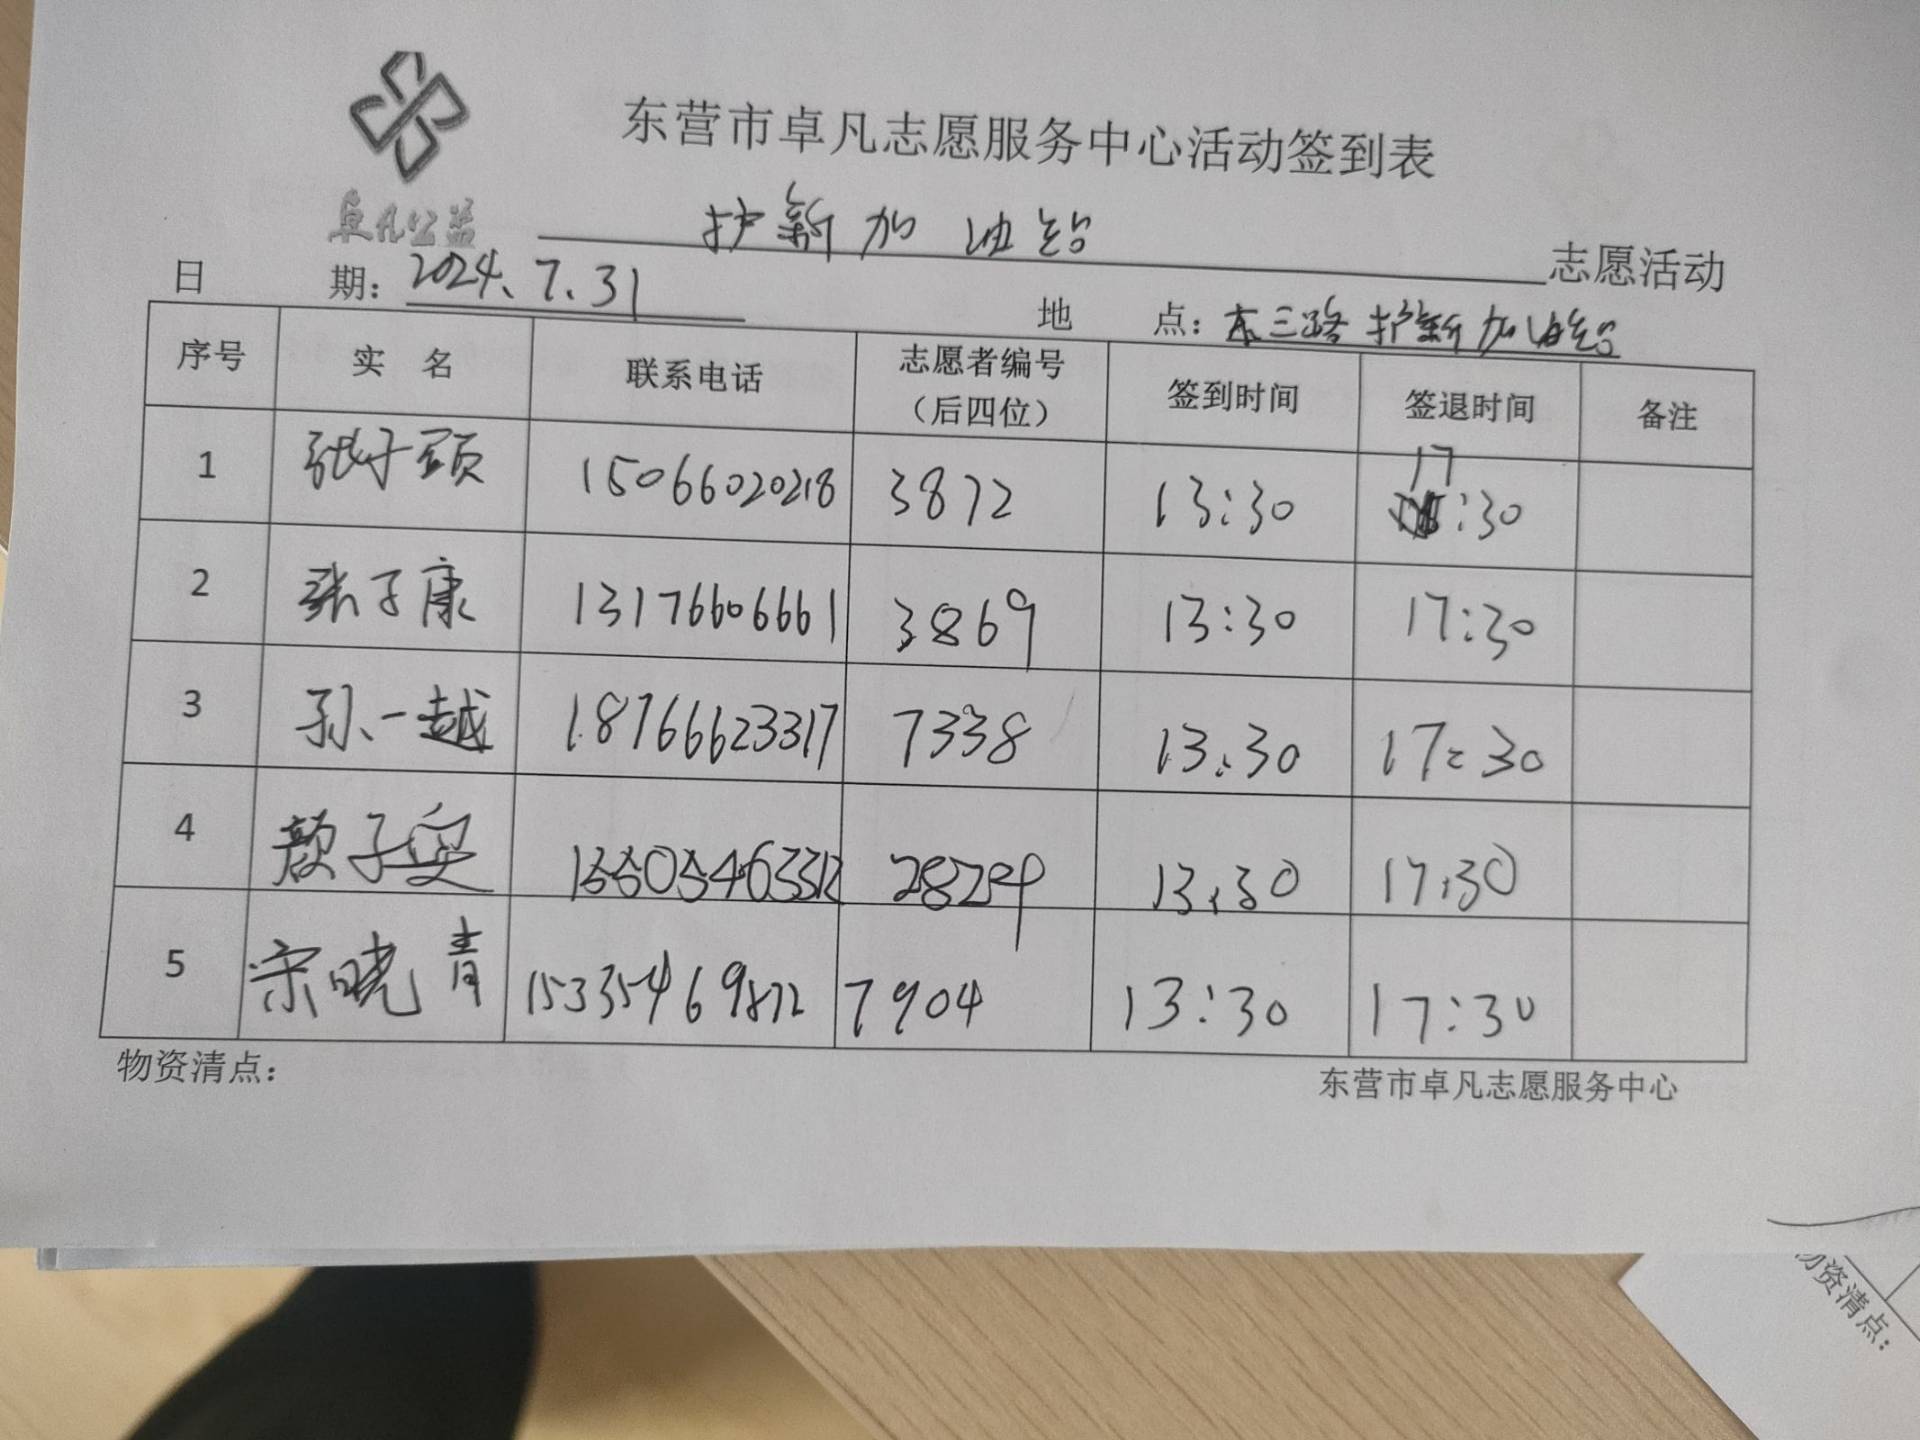 东营市卓凡志愿服务中心活动签到表
卓凡公益
护新加油站 志愿活动
日 期：2024.7.31 地 点：东三路护新加油站
序号 实 名 联系电话 志愿者编号（后四位） 签到时间 签退时间 备注
1 张子颐 15066020218 3872 13:30 17:30
2 张子康 13176606661 3869 13:30 17:30
3 孙一越 18766623317 7338 13:30 17:30
4 颜子 13:30 17:30
5 宋晓青 15335469872 7904 13:30 17:30
物资清点： 东营市卓凡志愿服务中心
物资清点：